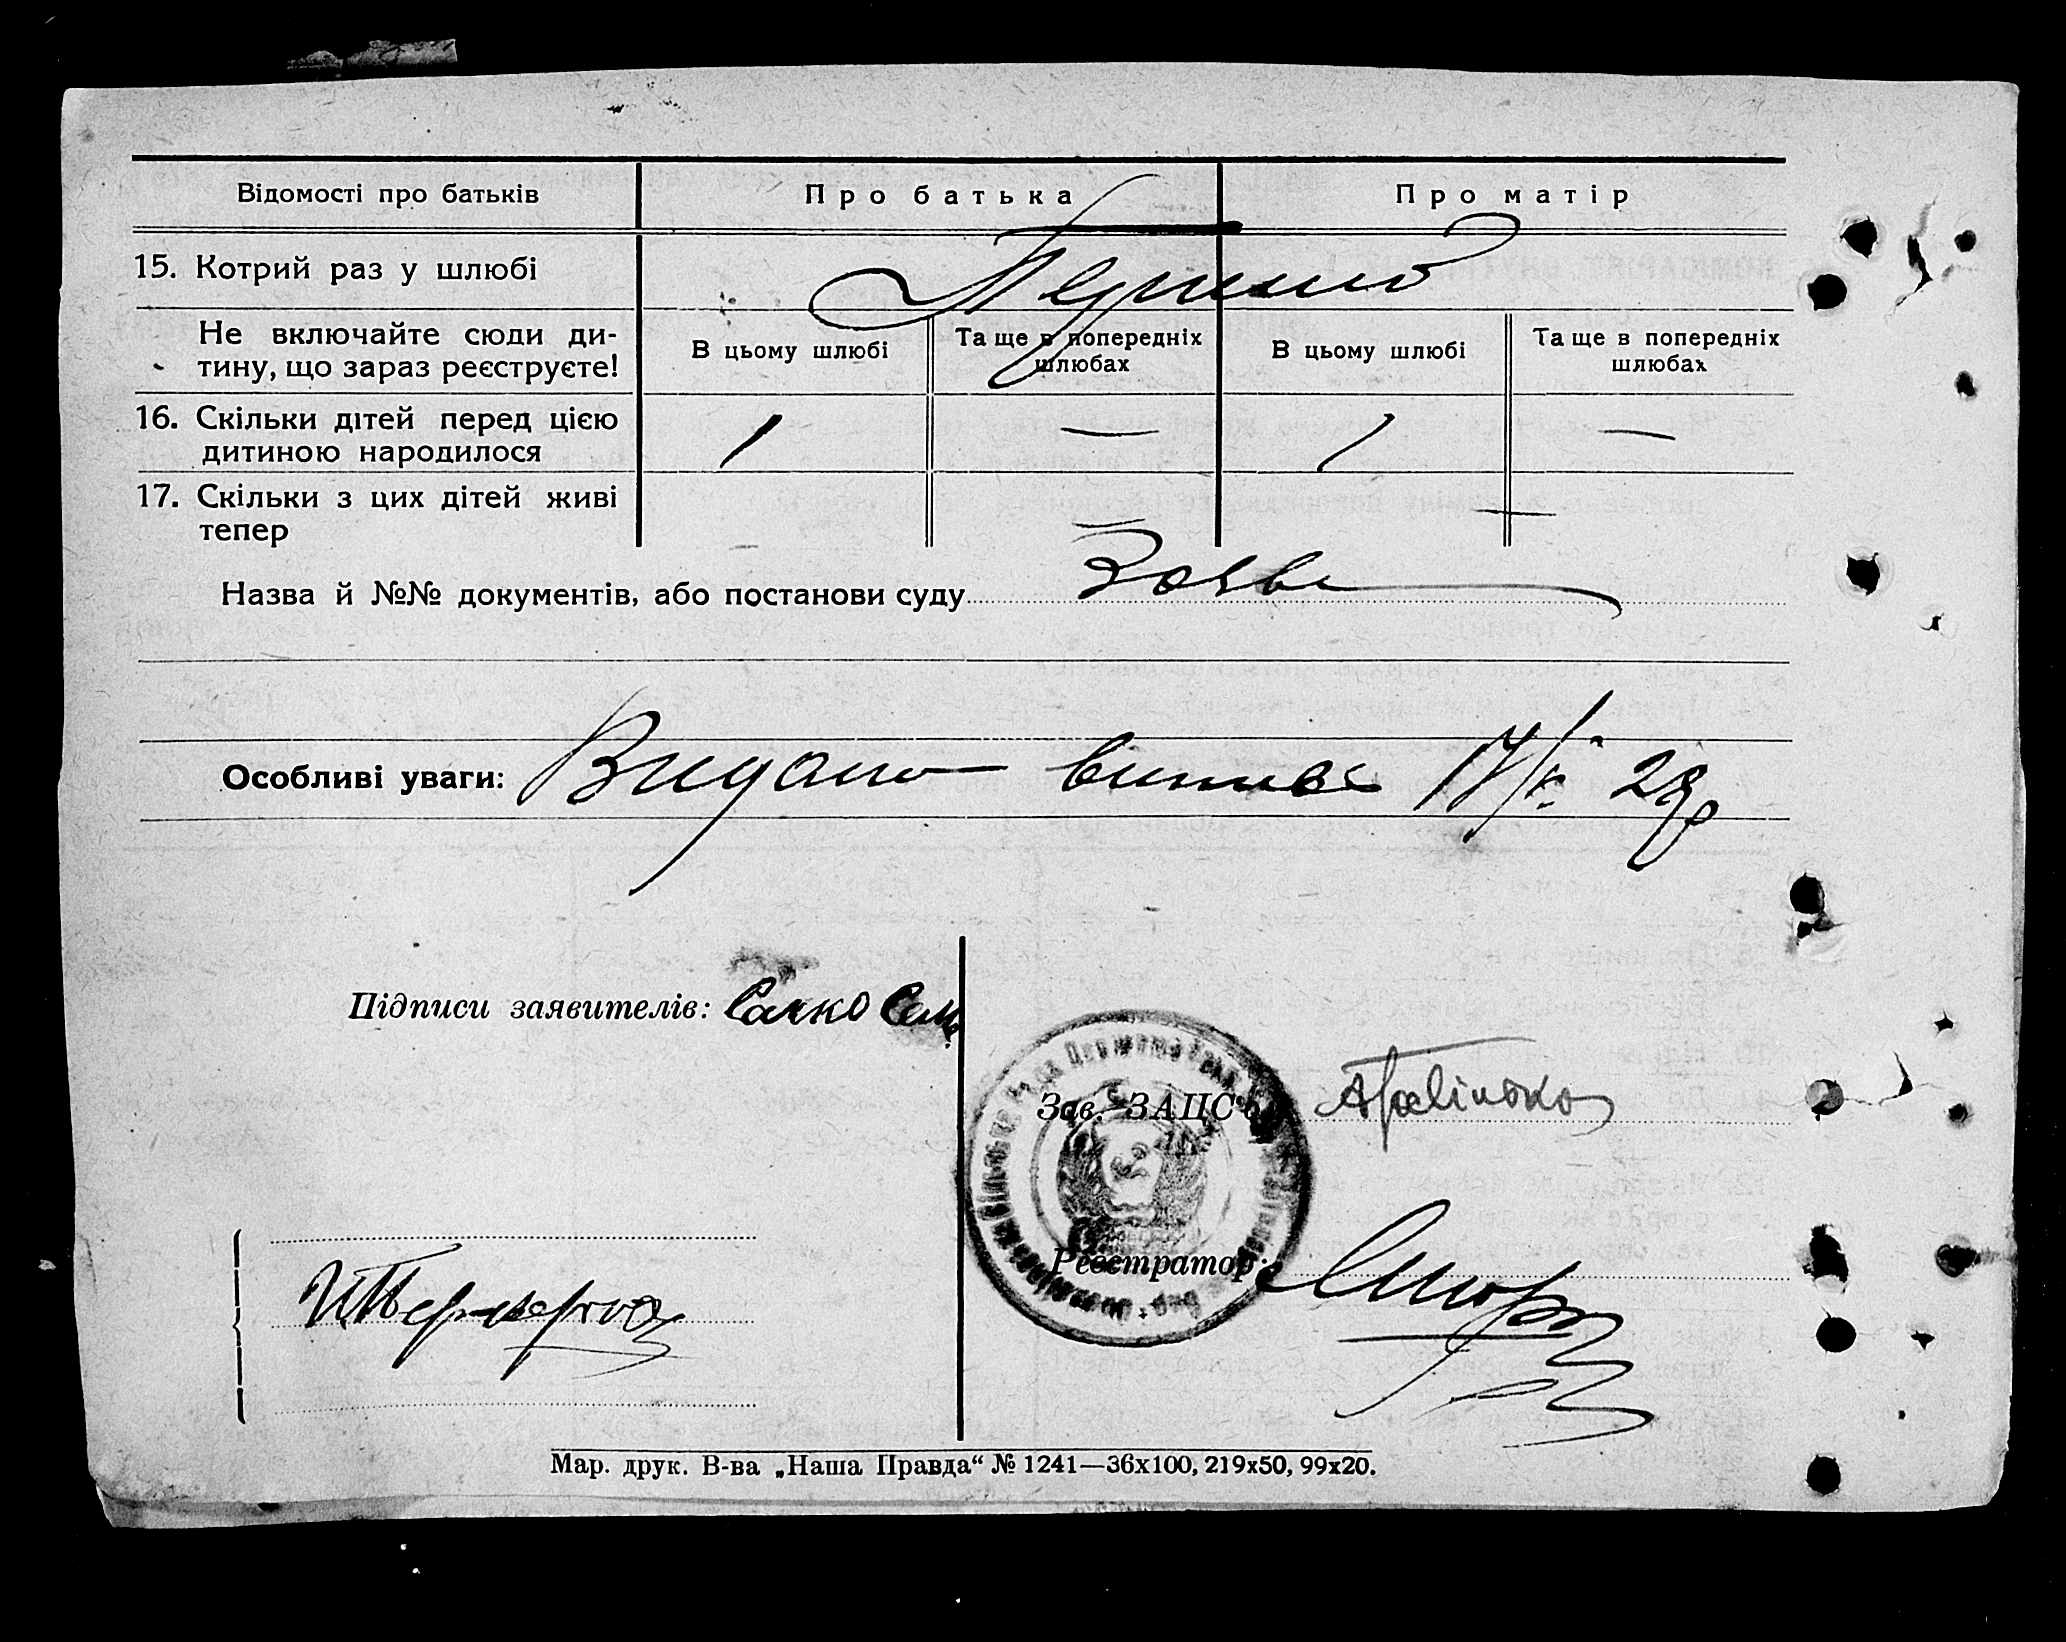 Відомості про батьків Про батька Про матір
15. Котрий раз у шлюбі
Не включайте сюди ди- В цьому шлюбі Та ще в попередніх В цьому шлюбі Та ще в попередніх
тину, що зараз реєструєте! шлюбах шлюбах
16. Скільки дітей перед цією 1 — 1 —
дитиною народилося
17. Скільки з цих дітей живі —
тепер
Назва й №№ документів, або постанови суду
Особливі уваги: Видано 28р
Підписи заявителів: Сачко Сем
Зав. ЗАЦС'ом
Реєстратор:
Мар. друк. В-ва „Наша Правда“ № 1241—36х100, 219х50, 99х20.